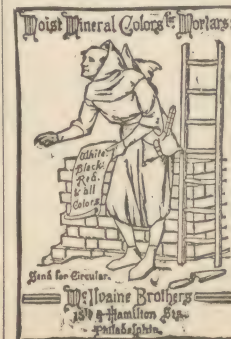 Moist Mineral Colors for Mortars:
White:
Black:
Red.
& all
Colors.
Send for Circular.
McIlvaine Brothers
15th & Hamilton Sts.
Philadelphia.